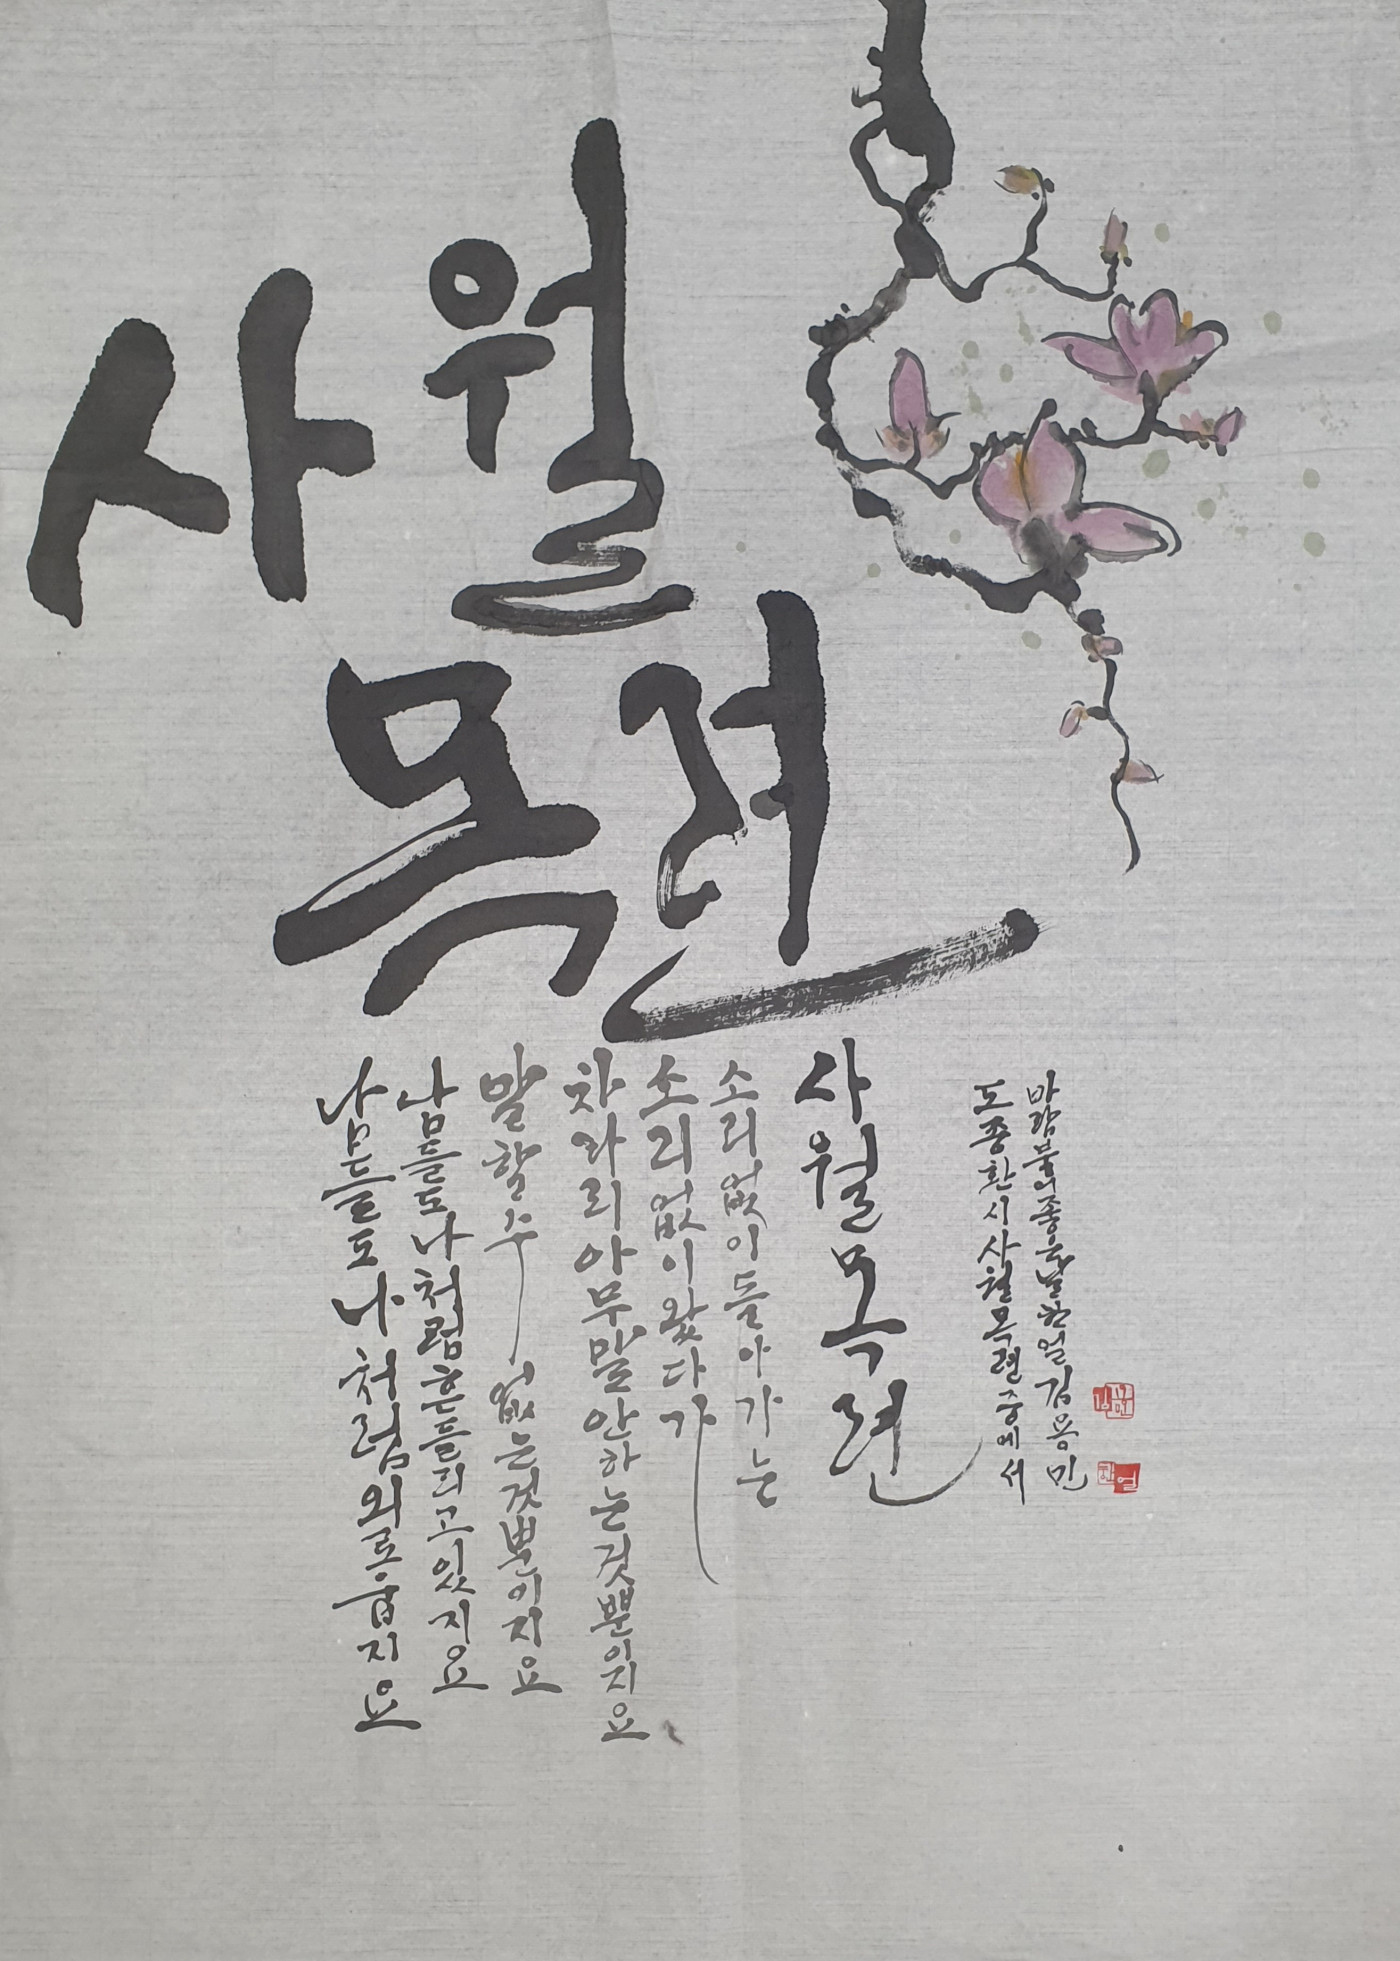 사월
목련
남들도 나처럼 외로웁지요
남들도 나처럼 흔들리고 있지요
말할수 없는것뿐이지요
차라리 아무말 안하는것뿐이지요
소리없이 왔다가
소리없이 돌아가는
사월 목련
도종환 시 사월 목련 중에서
바람불어 좋은날 한얼 김용민
한얼